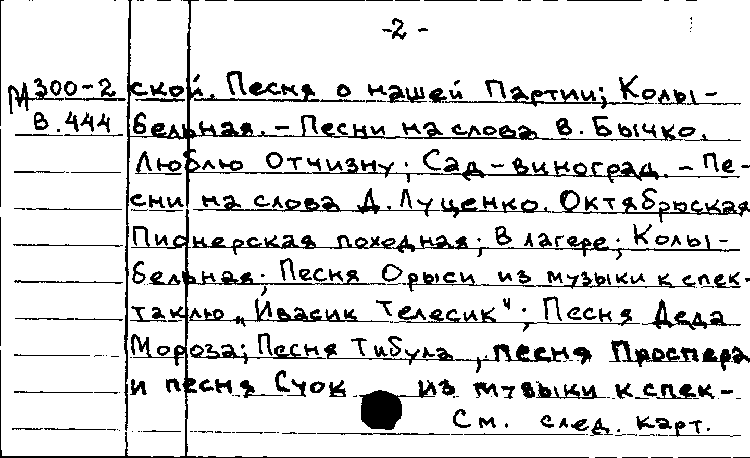 -2-
М300-2 ской. Песня о нашей Партии; Колы-
В.444 бельная. - Песни на слова В. Бычко.
Люблю Отчизну; Сад-виноград. - Пе-
сни на слова Д. Луценко. Октябрьская
Пионерская походная; В лагере; Колы-
бельная; Песня Орыси из музыки к спек-
таклю „Ивасик Телесик"; Песня Деда
Мороза; Песня Тибула, песня Проспера
и песня Суок из музыки к спек-
См. след. карт.